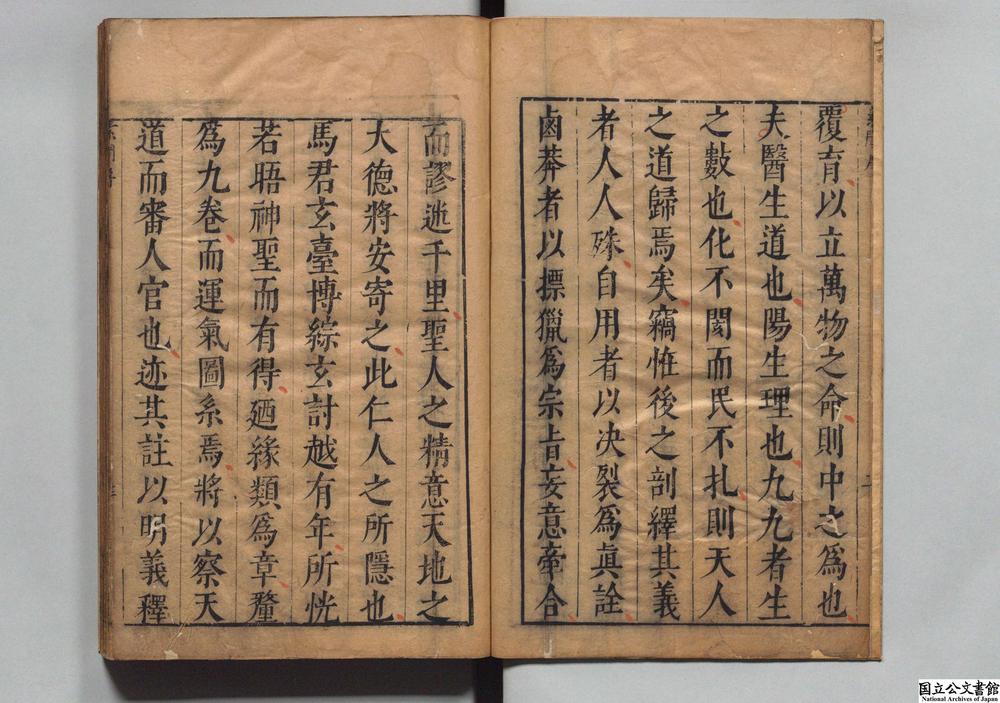 覆育以立萬物之命則中之為也
夫醫生道也陽生理也九九者生
之數也化不閡而民不札則天人
之道歸焉矣竊恠後之剖繹其義
者人人殊自用者以决裂為真詮
鹵莽者以摽獵為宗旨妄意牽合
而謬迷千里聖人之精意天地之
大德將安寄之此仁人之所隱也
馬君玄臺博綜玄討越有年所恍
若晤神聖而有得廼緣類為章釐
為九卷而運氣圖系焉將以察天
道而審人官也迹其註以明義釋
国立公文書館
National Archives of Japan